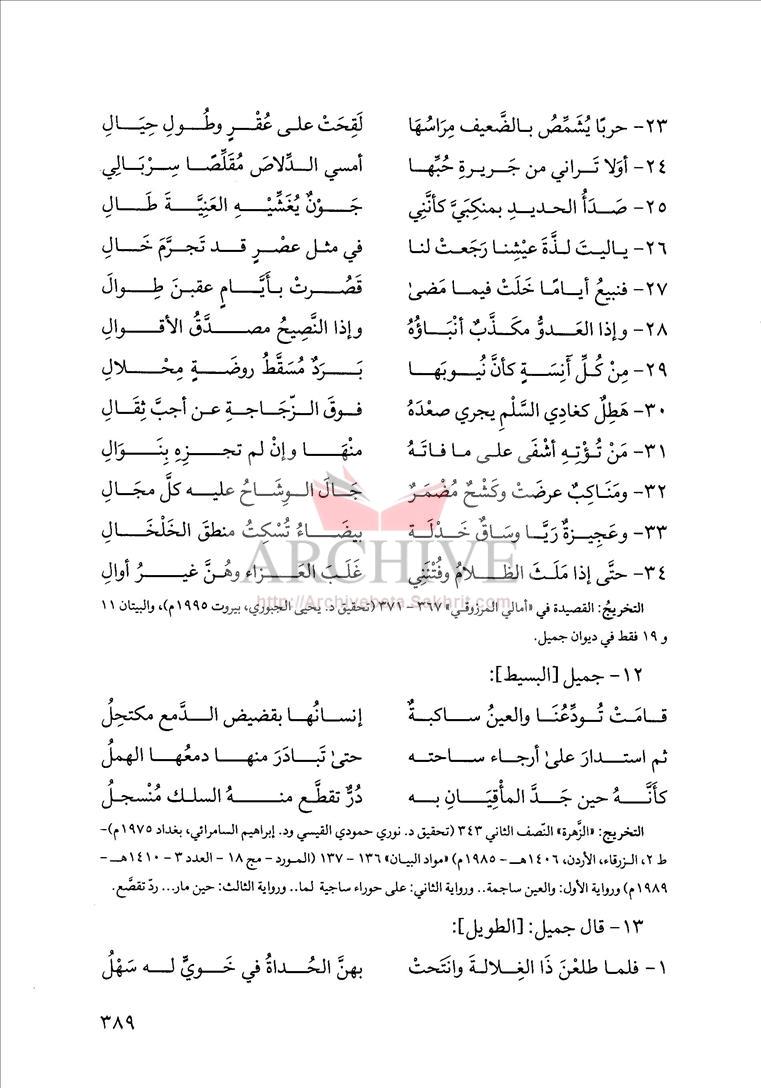 ٢٣- حربًا يُشَمِّصُ بـالضَّعيف مِرَاسُهَا لَقِحَتْ علـى عُقْـرٍ وطُـولِ حِيَـالِ
٢٤- أوَلا تَـراني من جَـريـرةِ حُبِّهـا أمسي الـدِّلاصَ مُقَلِّصًـا سِـرْبَـالِي
٢٥- صَـدَأُ الحـديـدِ بمنكِبَيَّ كأنَّنِي جَـوْنٌ يُغَشِّيْـهِ العَنِيَّـةَ طَـالِ
٢٦- يـاليتَ لـذَّةَ عيْشِنـا رَجَعتْ لنـا في مثـل عصْـرٍ قـد تَجرَّمَ خَـالِ
٢٧- فنبيعُ أيـامًـا خَلَتْ فيمـا مَضىٰ قَصُـرتْ بـأيَّـامٍ عقبـنَ طِـوالَ
٢٨- وإذا العَـدوُّ مكَـذَّبٌ أنْبَـاؤُهُ وإذا النَّصِيحُ مصـدَّقُ الأقـوالِ
٢٩- مِنْ كُلِّ أَنِسَـةٍ كأنَّ نُيـوبَهـا بَـرَدٌ مُسَقَّطُ روضَـةٍ مِحْـلالِ
٣٠- هَطِلٌ كغادِي السَّلْمِ يجري صعْدَهُ فـوقَ الـزّجَـاجـةِ عـن أجبَّ ثِقَـالِ
٣١- مَنْ تُـؤْتِـهِ أشْفَى علـى مـا فـاتَـهُ منْهَـا وإنْ لم تجـزِهِ بِنَـوَالِ
٣٢- ومَنَـاكِبٌ عرضَتْ وكَشْحٌ مُضْمَـرٌ جَـالَ الـوِشَـاحُ عليـه كلَّ مجَـالِ
٣٣- وعَجِيـزةٌ رَيَّـا وسَـاقٌ خَدْلَـة بيضَـاءُ تُسْكِتُ منطقَ الخَلْخَـالِ
ARCHIVE
٣٤- حتَّى إذا مَلَثَ الظَّلامُ وفُتْنَنِي غَلَبَ العَـزَاء وهُـنَّ غيـرُ أوالِ
http://Archivebeta.Sakhrit.com
التخريجُ: القصيدة في «أمالي المرزوقي» ٣٦٧ - ٣٧١ (تحقيق د. يحيى الجبوري، بيروت ١٩٩٥م)، والبيتان ١١
و ١٩ فقط في ديوان جميل.
١٢- جميل [البسيط]:
قـامَـتْ تُـودِّعُنَـا والعينُ سـاكبـةٌ إنسـانُهـا بقضيض الـدَّمع مكتحِلُ
ثم استـدارَ علىٰ أرجـاء سـاحتـه حتىٰ تَبـادَرَ منهـا دمعُهـا الهملُ
كأنَّـهُ حين جَـدَّ المأْقِيَـانِ بـه دُرٌّ تقطَّـع منـهُ السلـك مُنْسجـلُ
التخريج: «الزَّهرة» النّصف الثاني ٣٤٣ (تحقيق د. نوري حمودي القيسي ود. إبراهيم السامرائي، بغداد ١٩٧٥م)-
ط ٢، الـزرقـاء، الأردن، ١٤٠٦هـ - ١٩٨٥م) «مواد البيان» ١٣٦ - ١٣٧ (المـورد - مج ١٨ - العدد ٣ - ١٤١٠هـ -
١٩٨٩م) ورواية الأول: والعين ساجمة.. ورواية الثاني: على حوراء ساجية لما.. ورواية الثالث: حين مار... ردّ تقصَّع.
١٣- قال جميل: [الطويل]:
١- فلما طلعْنَ ذَا الغِـلالـةَ وانْتَحتْ بهنَّ الحُـداةُ في خَـويٍّ لـه سَهْلُ
٣٨٩